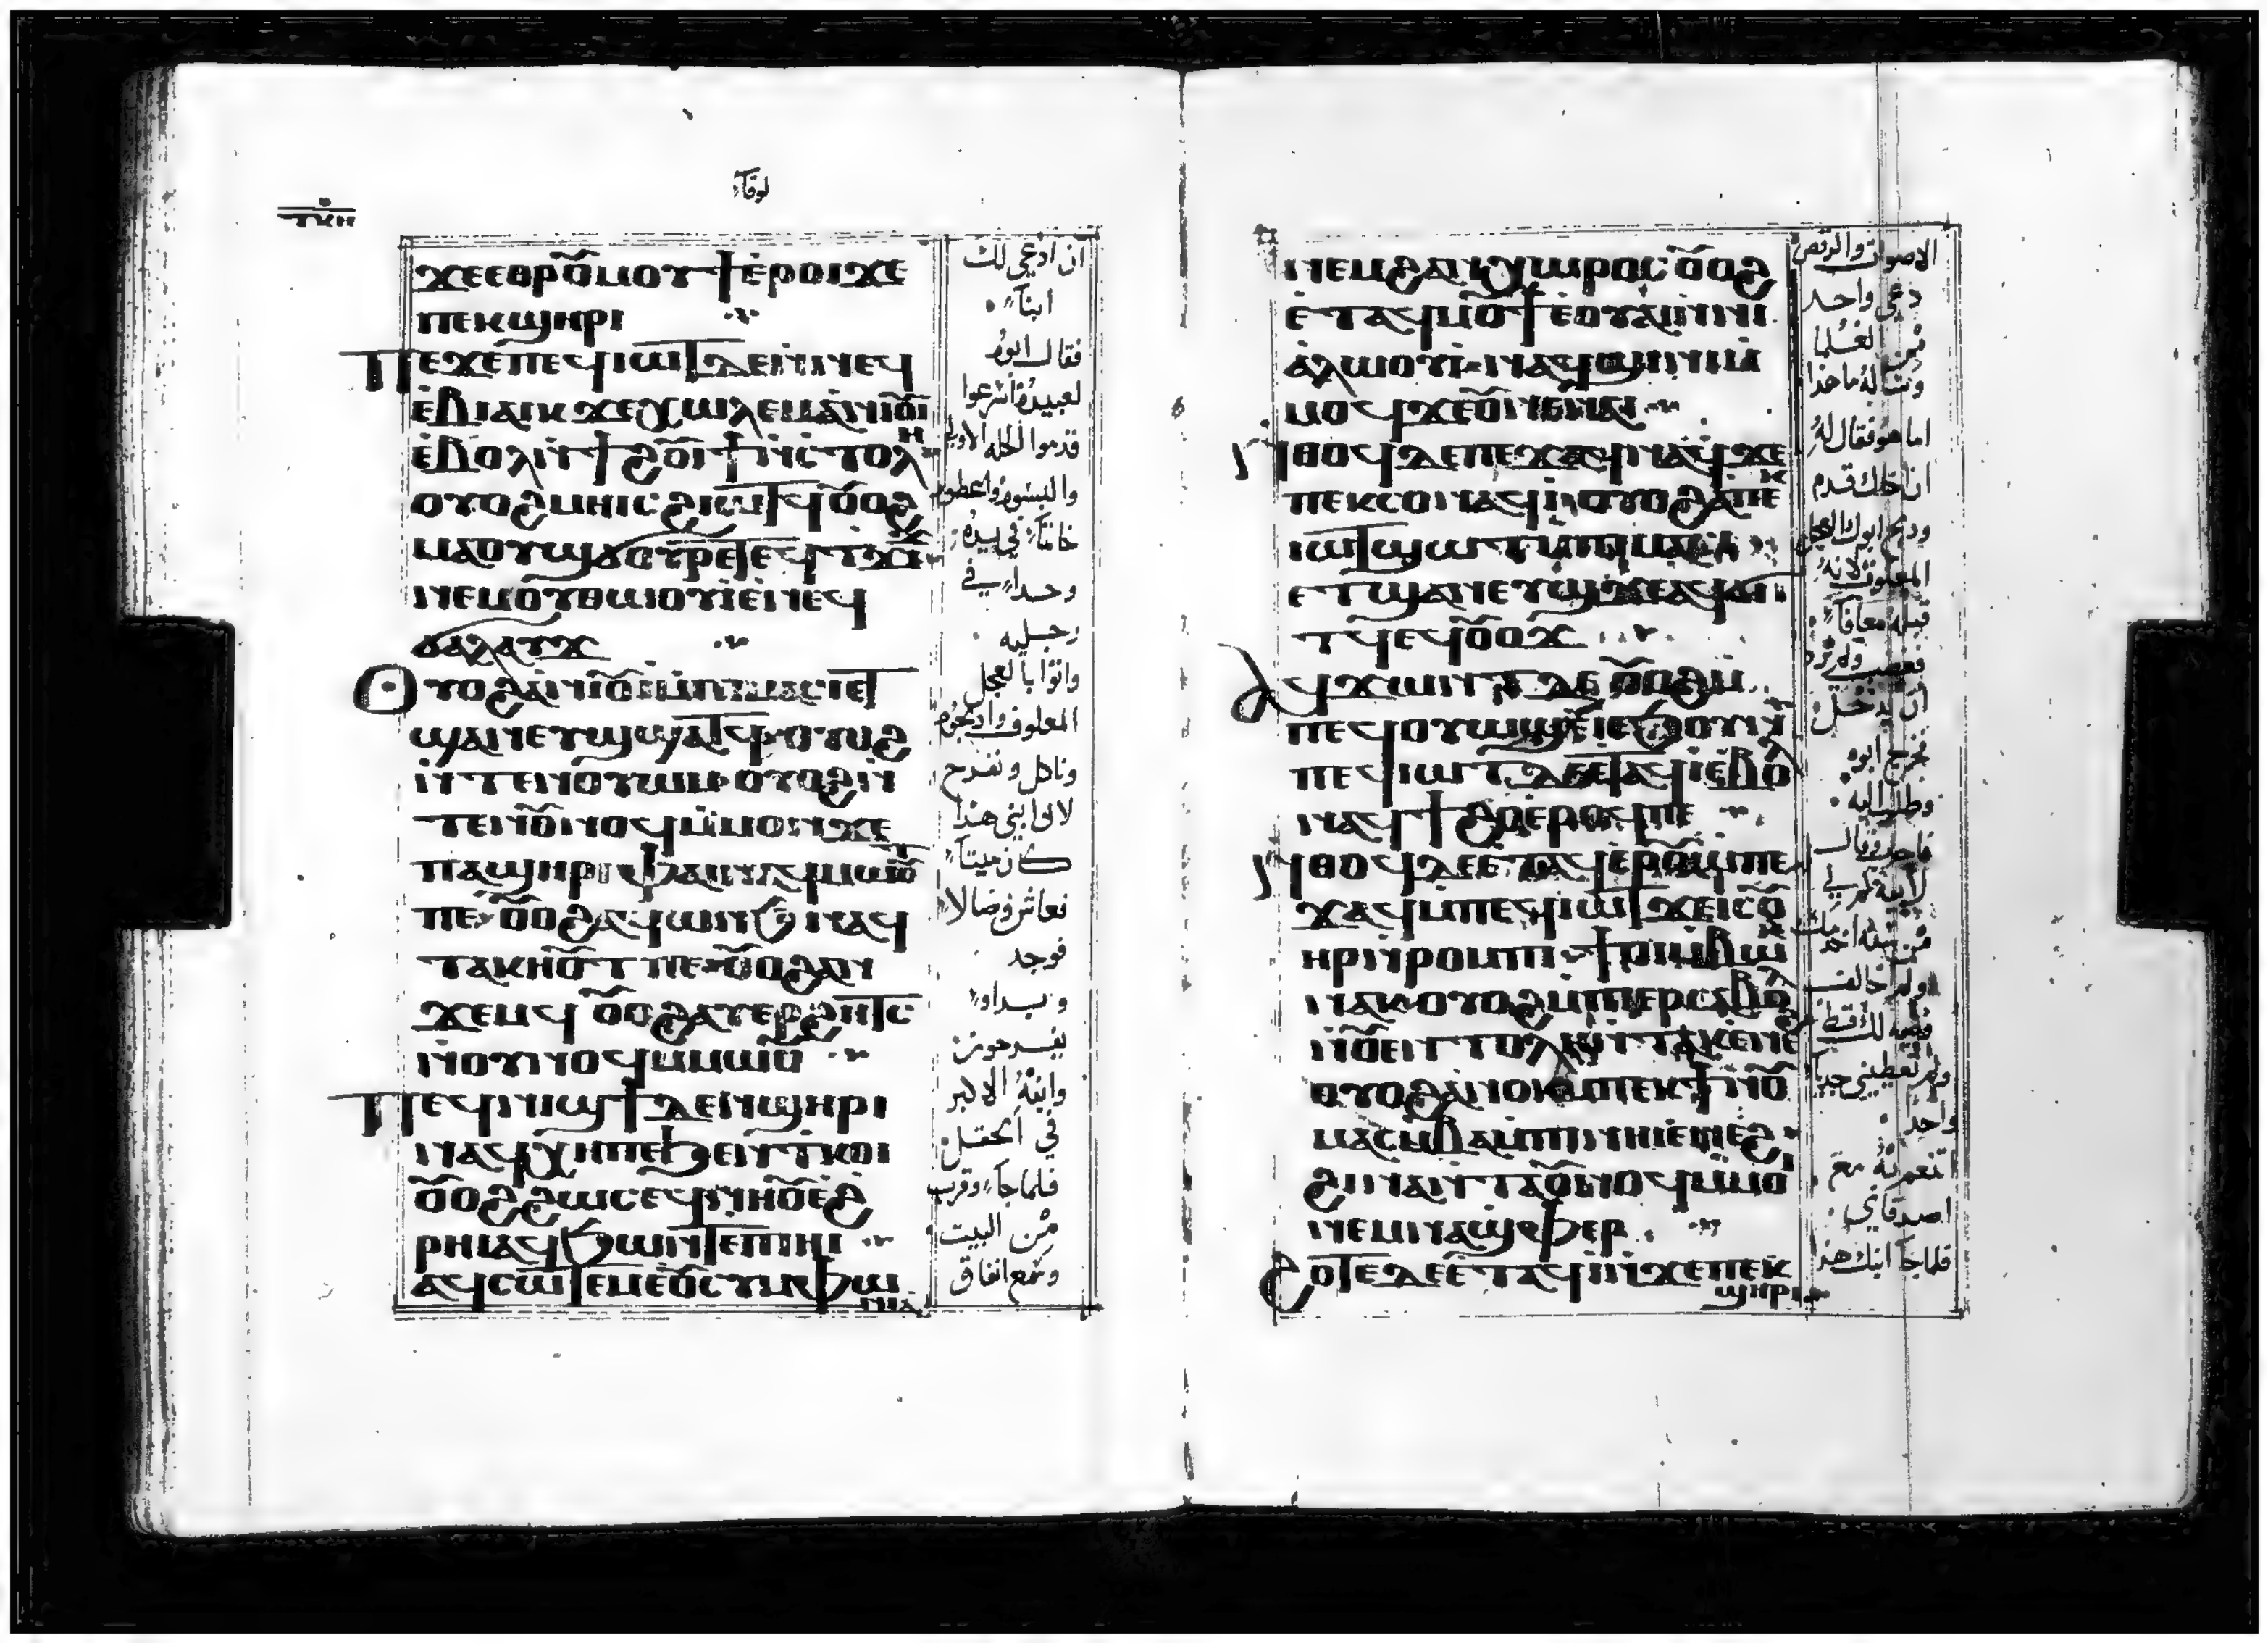 لوقا
ⲧⲕⲏ
ϫⲉⲉⲑⲣⲟⲩⲙⲟⲩϯⲉⲣⲟⲓϫⲉ
ⲡⲉⲕϣⲏⲣⲓ
ⲡⲉϫⲉⲡⲉϥⲓⲱⲧⲇⲉⲛⲛⲉϥ
ⲉⲃⲓⲁⲓⲕ ϫⲉⲭⲱⲗⲉⲙⲁⲛⲓⲟⲩⲓ
ⲉⲃⲟⲗⲛϯϩⲟⲩⲓϯⲛⲥⲧⲟⲗⲏ
ⲟⲩⲟϩⲙⲏⲓⲥϩⲓⲱⲧϥ ⲟⲩⲟϩ
ⲙⲁⲟⲩϣϭⲟⲩⲣⲉⲧⲉϥϫⲓϫ
ⲛⲉⲙⲟⲩⲑⲱⲟⲩⲓⲉⲛⲉϥ
ϭⲁⲗⲁⲩϫ
ⲟⲩⲟϩⲁⲛⲓⲟⲩⲓⲙⲡⲓⲙⲁⲥⲓⲉⲧ
ϣⲁⲛⲉⲩϣϣⲁⲧϥ ⲟⲩⲟϩ
ⲛⲧⲉⲛⲟⲩⲱⲙ ⲟⲩⲟϩⲛ
ⲧⲉⲛⲟⲩⲛⲟϥ ⲙⲙⲟⲛ ϫⲉ
ⲡⲁϣⲏⲣⲓ ⲫⲁⲓ ⲛⲁϥⲙⲱⲟⲩⲧ
ⲡⲉ ⲟⲩⲟϩ ⲁϥⲱⲛϧ ⲛⲁϥ
ⲧⲁⲕⲏⲟⲩⲧ ⲡⲉ ⲟⲩⲟϩⲁⲩ
ϫⲉⲙϥ ⲟⲩⲟϩⲁⲩⲉⲣϩⲏⲧⲥ
ⲛⲟⲩⲛⲟϥⲙⲙⲱⲟⲩ
ⲡⲉϥⲛⲓϣϯⲇⲉⲛϣⲏⲣⲓ
ⲛⲁϥⲭⲏⲡⲉϧⲉⲛⲧⲕⲟⲓ
ⲟⲩⲟϩϩⲱⲥⲉϥⲛⲏⲟⲩⲉϩ
ⲣⲏⲓⲁϥϧⲱⲛⲧⲉⲡⲓⲏⲓ
ⲁϥⲥⲱⲧⲉⲙⲉⲟⲩⲥⲩⲙⲫⲱ
ⲛⲓⲁ
ان ادعى لك
ابناً
فقال ابوه
لعبيده اسرعوا
قدموا الحله الاولى
والبسوه واعطوه
خاتماً في يده
وحداء في
رجليه
واتوا بالعجل
المعلوف واذبحوه
وناكل ونفرح
لان ابني هذا
كان ميتاً
فعاش وضالا
فوجد
وبداوا
يفرحون
وابنه الاكبر
في الحقل
فلما جاء وقرب
من البيت
وسمع اتفاق
ⲛⲉⲙϩⲁⲛⲭⲱⲣⲟⲥ ⲟⲩⲟϩ
ⲉⲧⲁϥⲙⲟⲩϯⲉⲟⲩⲁⲓⲛⲛⲓ
ⲁⲗⲱⲟⲩⲓ ⲛⲁϥϣⲓⲛⲓⲙ
ⲙⲟϥϫⲉⲟⲩⲛⲉⲛⲁⲓ
ⲛⲑⲟϥⲇⲉⲡⲉϫⲁϥⲛⲁϥϫⲉ
ⲡⲉⲕⲥⲟⲛⲁϥⲓ ⲟⲩⲟϩⲁⲡⲉⲕ
ⲓⲱⲧϣⲱⲧⲙⲡⲓⲙⲁⲥⲓ
ⲉⲧϣⲁⲛⲉⲩϣϫⲉⲁϥϭⲓ
ⲧϥⲉϥⲟⲩⲟϫ
ⲁϥϫⲱⲛⲧ ⲇⲉ ⲟⲩⲟϩⲙ
ⲡⲉϥⲟⲩⲱϣⲉⲓⲉϧⲟⲩⲛ
ⲡⲉϥⲓⲱⲧⲇⲉⲉⲧⲁϥⲓⲉⲃⲟⲗ
ⲛⲁϥϯϩⲟⲉⲣⲟϥⲡⲉ
ⲛⲑⲟϥⲇⲉⲉⲧⲁϥⲉⲣⲟⲩⲱⲡⲉ
ϫⲁϥⲙⲡⲉϥⲓⲱⲧϫⲉⲓⲥⲟⲩ
ⲏⲣⲛⲣⲟⲙⲡⲓ ϯⲟⲓⲙⲃⲱⲕ
ⲛⲁⲕⲟⲩⲟϩⲙⲡⲓⲉⲣⲥⲁⲃⲟⲗ
ⲛⲟⲩⲉⲛⲧⲟⲗⲏⲛⲧⲁⲕⲉⲛⲉϩ
ⲟⲩⲟϩⲁⲛⲟⲕⲙⲡⲉⲕϯⲛⲟⲩ
ⲙⲁⲥⲙⲃⲁⲉⲙⲡⲓⲛⲏⲓⲉⲛⲉϩ
ϩⲓⲛⲁⲛⲧⲁⲟⲩⲛⲟϥⲙⲙⲟⲓ
ⲛⲉⲙⲛⲁϣⲫⲏⲣ
ϩⲟⲧⲉⲇⲉⲉⲧⲁϥⲓⲛϫⲉⲡⲉⲕ
ϣⲏⲣⲓ
الاصوات والرقص
دعى واحد
من الغلما
وساله ما هذا
اما هو فقال له
ان اخاك قدم
وذبح ابوك العجل
المعلوف لانه
قبله معافاً
فغضب ولم يرد
ان يدخل
فخرج ابوه
وطلب اليه
فاجاب وقال
لابيه كم لي
من سنه اخدمك
ولم اخالف
وصيه لك قط
ولم تعطيني جدياً
واحد
اتنعم به مع
اصدقاي
فلما جا ابنك هذا